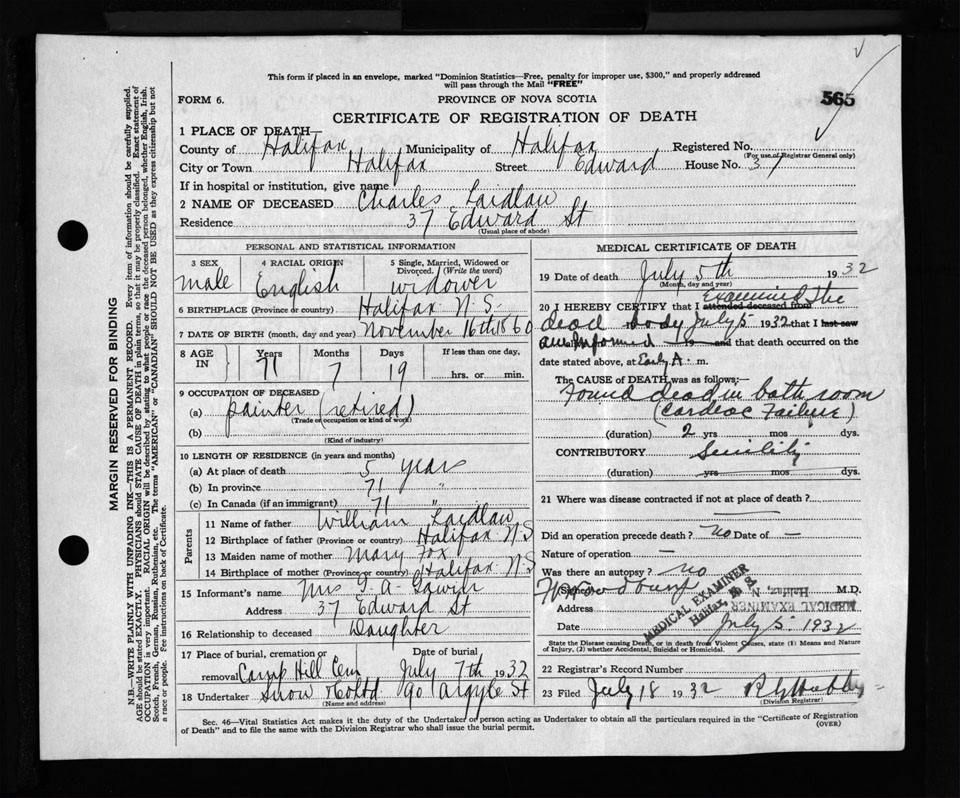 This form if placed in an envelope, marked "Dominion Statistics—Free, penalty for improper use, $300," and properly addressed
will pass through the Mail "FREE"
FORM 6.
PROVINCE OF NOVA SCOTIA
565
CERTIFICATE OF REGISTRATION OF DEATH
1 PLACE OF DEATH—
County of Halifax Municipality of Halifax Registered No.
(For use of Registrar General only)
City or Town Halifax Street Edward House No. 37
If in hospital or institution, give name
2 NAME OF DECEASED Charles Laidlaw
Residence 37 Edward St
(Usual place of abode)
PERSONAL AND STATISTICAL INFORMATION
3 SEX 4 RACIAL ORIGIN 5 Single, Married, Widowed or
Divorced. (Write the word)
male English widower
6 BIRTHPLACE (Province or country) Halifax N.S.
7 DATE OF BIRTH (month, day and year) November 16th 1860
8 AGE IN Years Months Days If less than one day,
71 7 19 hrs. or min.
9 OCCUPATION OF DECEASED
(a) painter (retired)
(Trade or occupation or kind of work)
(b)
(Kind of industry)
10 LENGTH OF RESIDENCE (in years and months)
(a) At place of death 5 years
(b) In province 71 "
(c) In Canada (if an immigrant) 71 "
Parents
11 Name of father William Laidlaw
12 Birthplace of father (Province or country) Halifax N.S
13 Maiden name of mother Mary Fox
14 Birthplace of mother (Province or country) Halifax N.S
15 Informant's name Mrs A.
Address 37 Edward St
16 Relationship to deceased Daughter
17 Place of burial, cremation or removal Camp Hill Cem Date of burial July 7th 1932
18 Undertaker Snow & Co Ltd 90 Argyle St
(Name and address)
MEDICAL CERTIFICATE OF DEATH
19 Date of death July 5th 1932
(Month, day and year)
20 I HEREBY CERTIFY that I attended deceased from Examined The
dead body July 5 1932 that I last saw
am informed 19 and that death occurred on the
date stated above, at Early A. m.
The CAUSE OF DEATH was as follows:—
Found dead in bath room
(Cardiac Failure)
(duration) 2 yrs mos dys.
CONTRIBUTORY Senility
(duration) yrs mos dys.
21 Where was disease contracted if not at place of death?
Did an operation precede death? No Date of —
Nature of operation —
Was there an autopsy? no
Signed M.D.
Address
MEDICAL EXAMINER
Halifax, N. S.
MEDICAL EXAMINER
Halifax, N. S.
Date July 5. 1932
State the Disease causing Death, or in death from Violent Causes, state (1) Means and Nature
of Injury, (2) whether Accidental, Suicidal or Homicidal.
22 Registrar's Record Number
23 Filed July 18 1932
(Division Registrar)
Sec. 46—Vital Statistics Act makes it the duty of the Undertaker or person acting as Undertaker to obtain all the particulars required in the "Certificate of Registration
of Death" and to file the same with the Division Registrar who shall issue the burial permit.
(OVER)
MARGIN RESERVED FOR BINDING
N.B.—WRITE PLAINLY WITH UNFADING INK—THIS IS A PERMANENT RECORD. Every item of information should be carefully supplied.
AGE should be stated EXACTLY. PHYSICIANS should STATE CAUSE OF DEATH in plain terms, so that it may be properly classified. Exact statement of
OCCUPATION is very important. RACIAL ORIGIN will be described by stating to what people or race the deceased person belonged, whether English, Irish,
Scotch, French, German, Russian, Ruthenian, etc. The terms "AMERICAN" or "CANADIAN" SHOULD NOT BE USED as they express citizenship but not
a race or people. See instructions on back of Certificate.